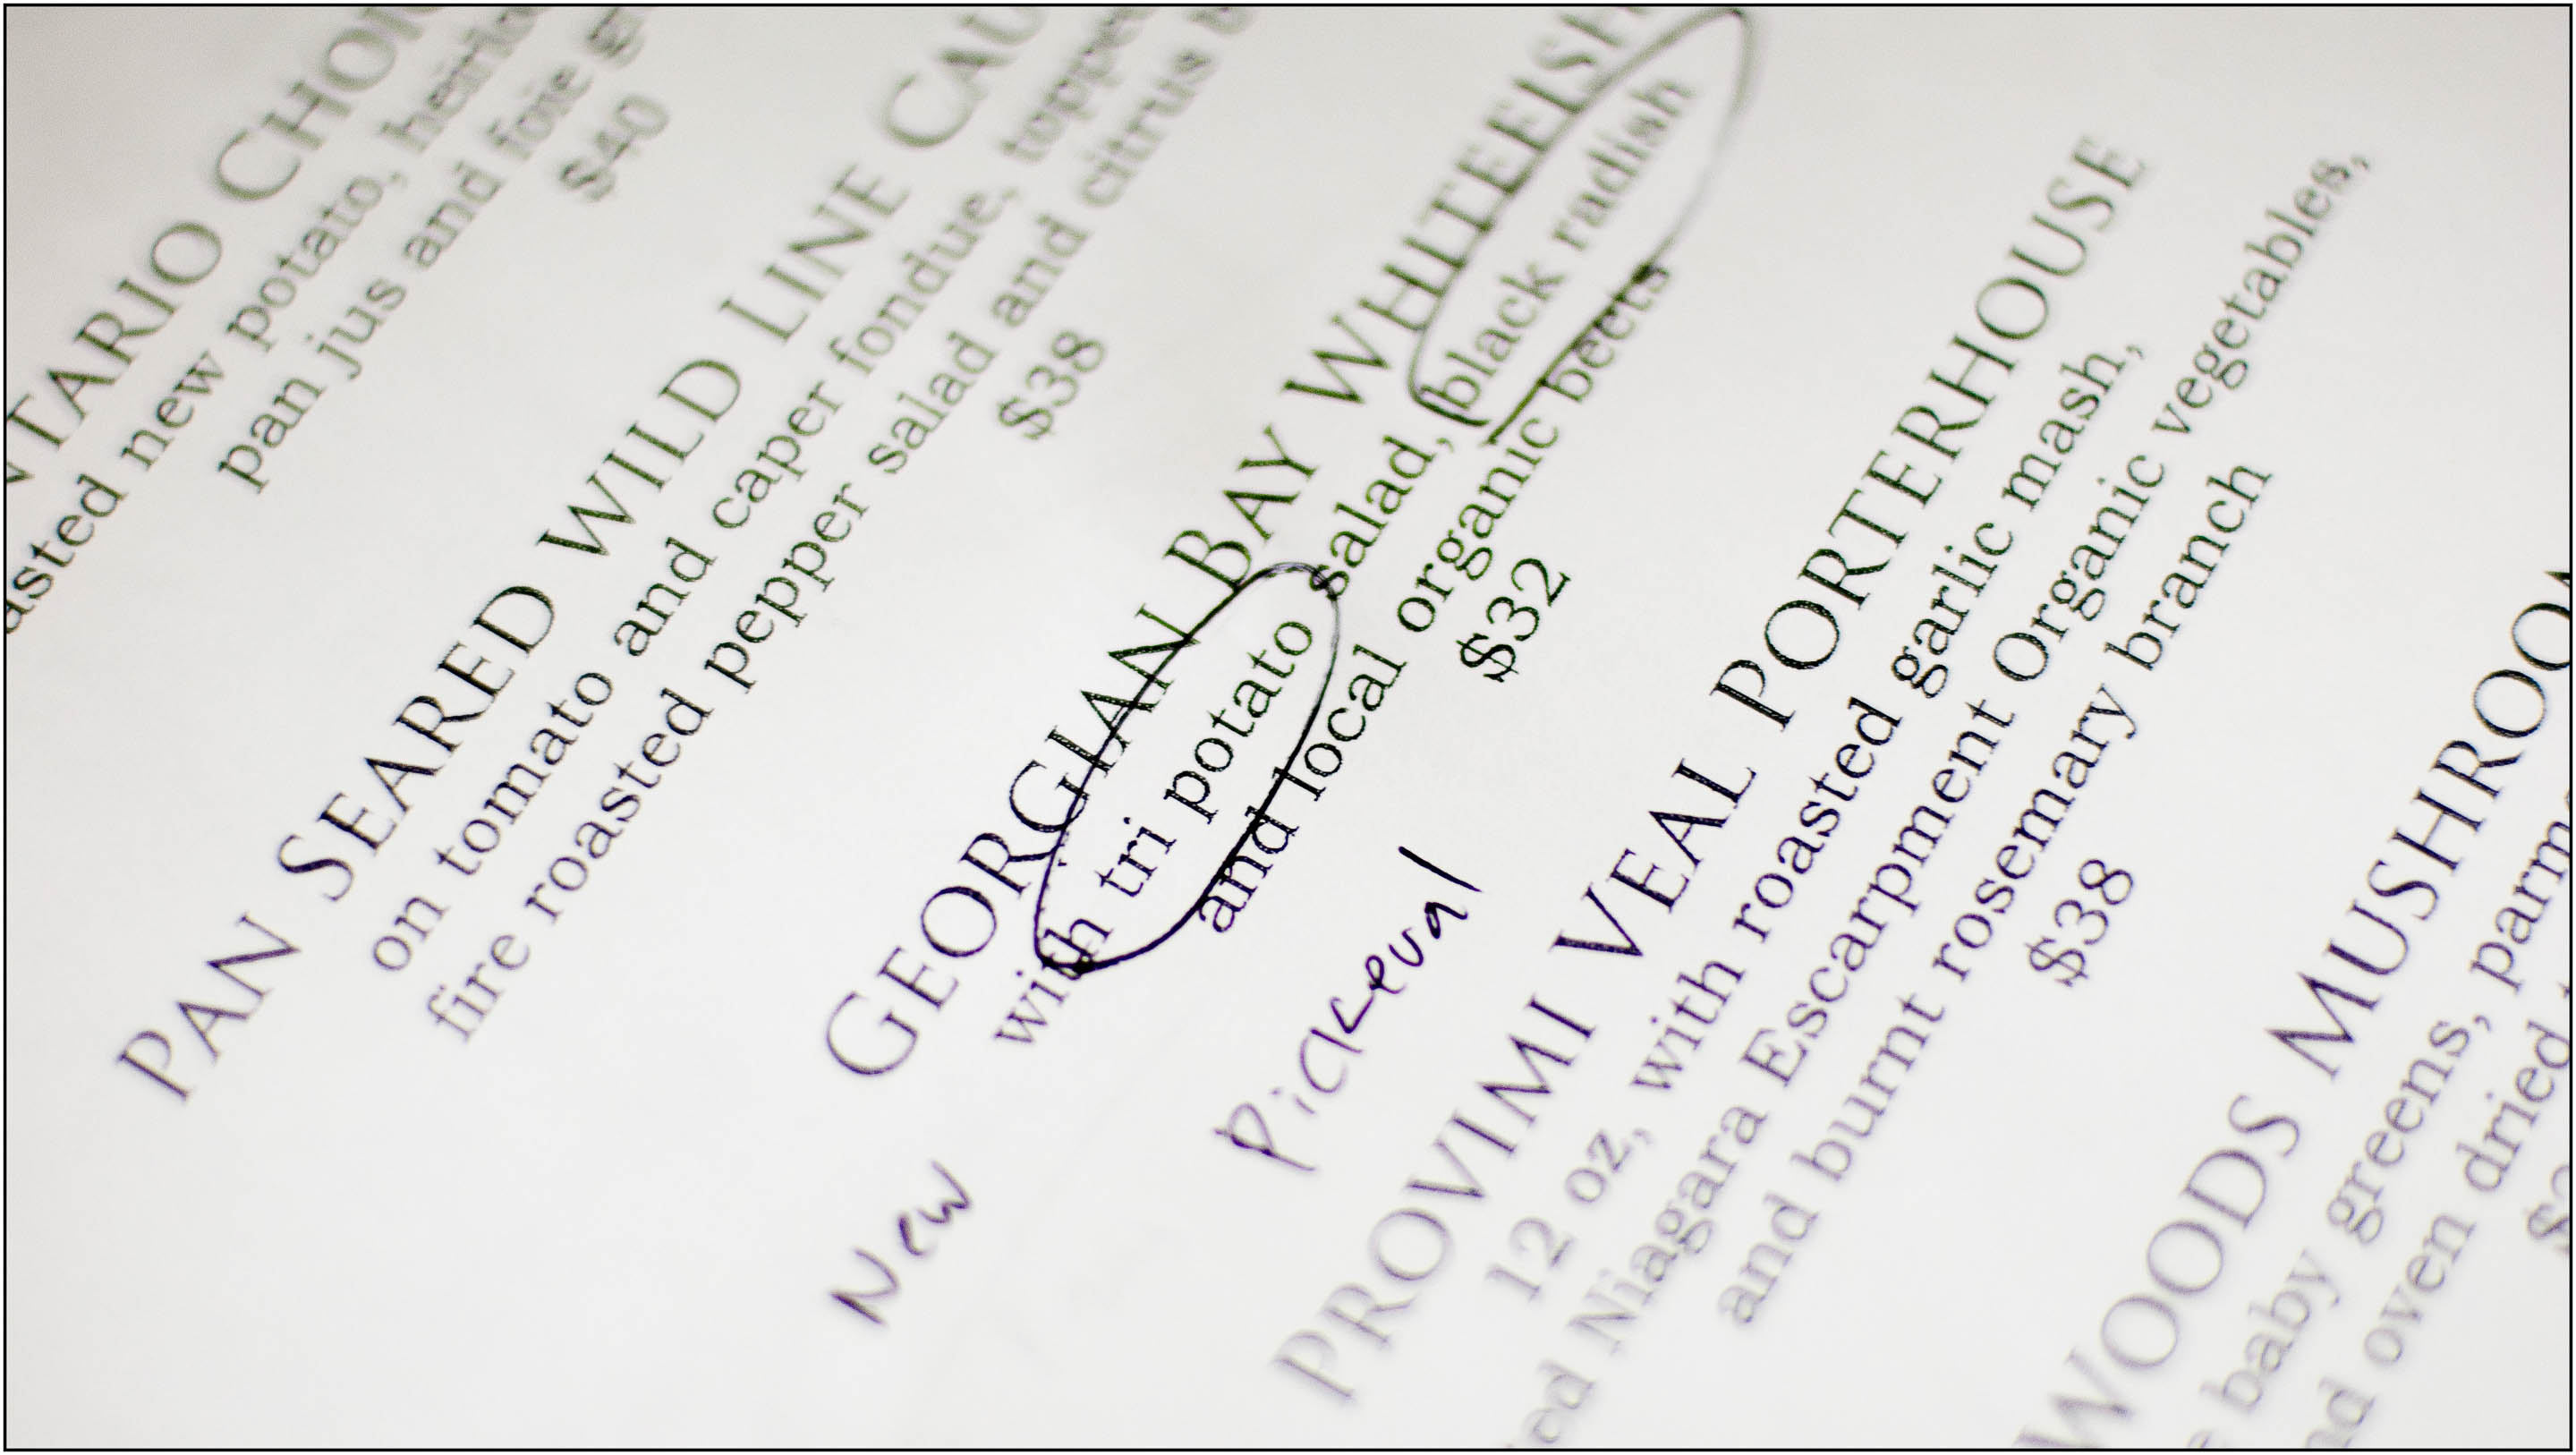 TARIO
new potato,
pan jus and foie
$40
PAN SEARED WILD LINE
on tomato and caper fondue,
fire roasted pepper salad and citrus
$38
GEORGIAN BAY WHITEFISH
with tri potato salad, black radish
and local organic beets
$32
New
Pickeual
PROVIMI VEAL PORTERHOUSE
12 oz, with roasted garlic mash,
Niagara Escarpment Organic vegetables,
and burnt rosemary branch
$38
WOODS
baby greens,
oven dried